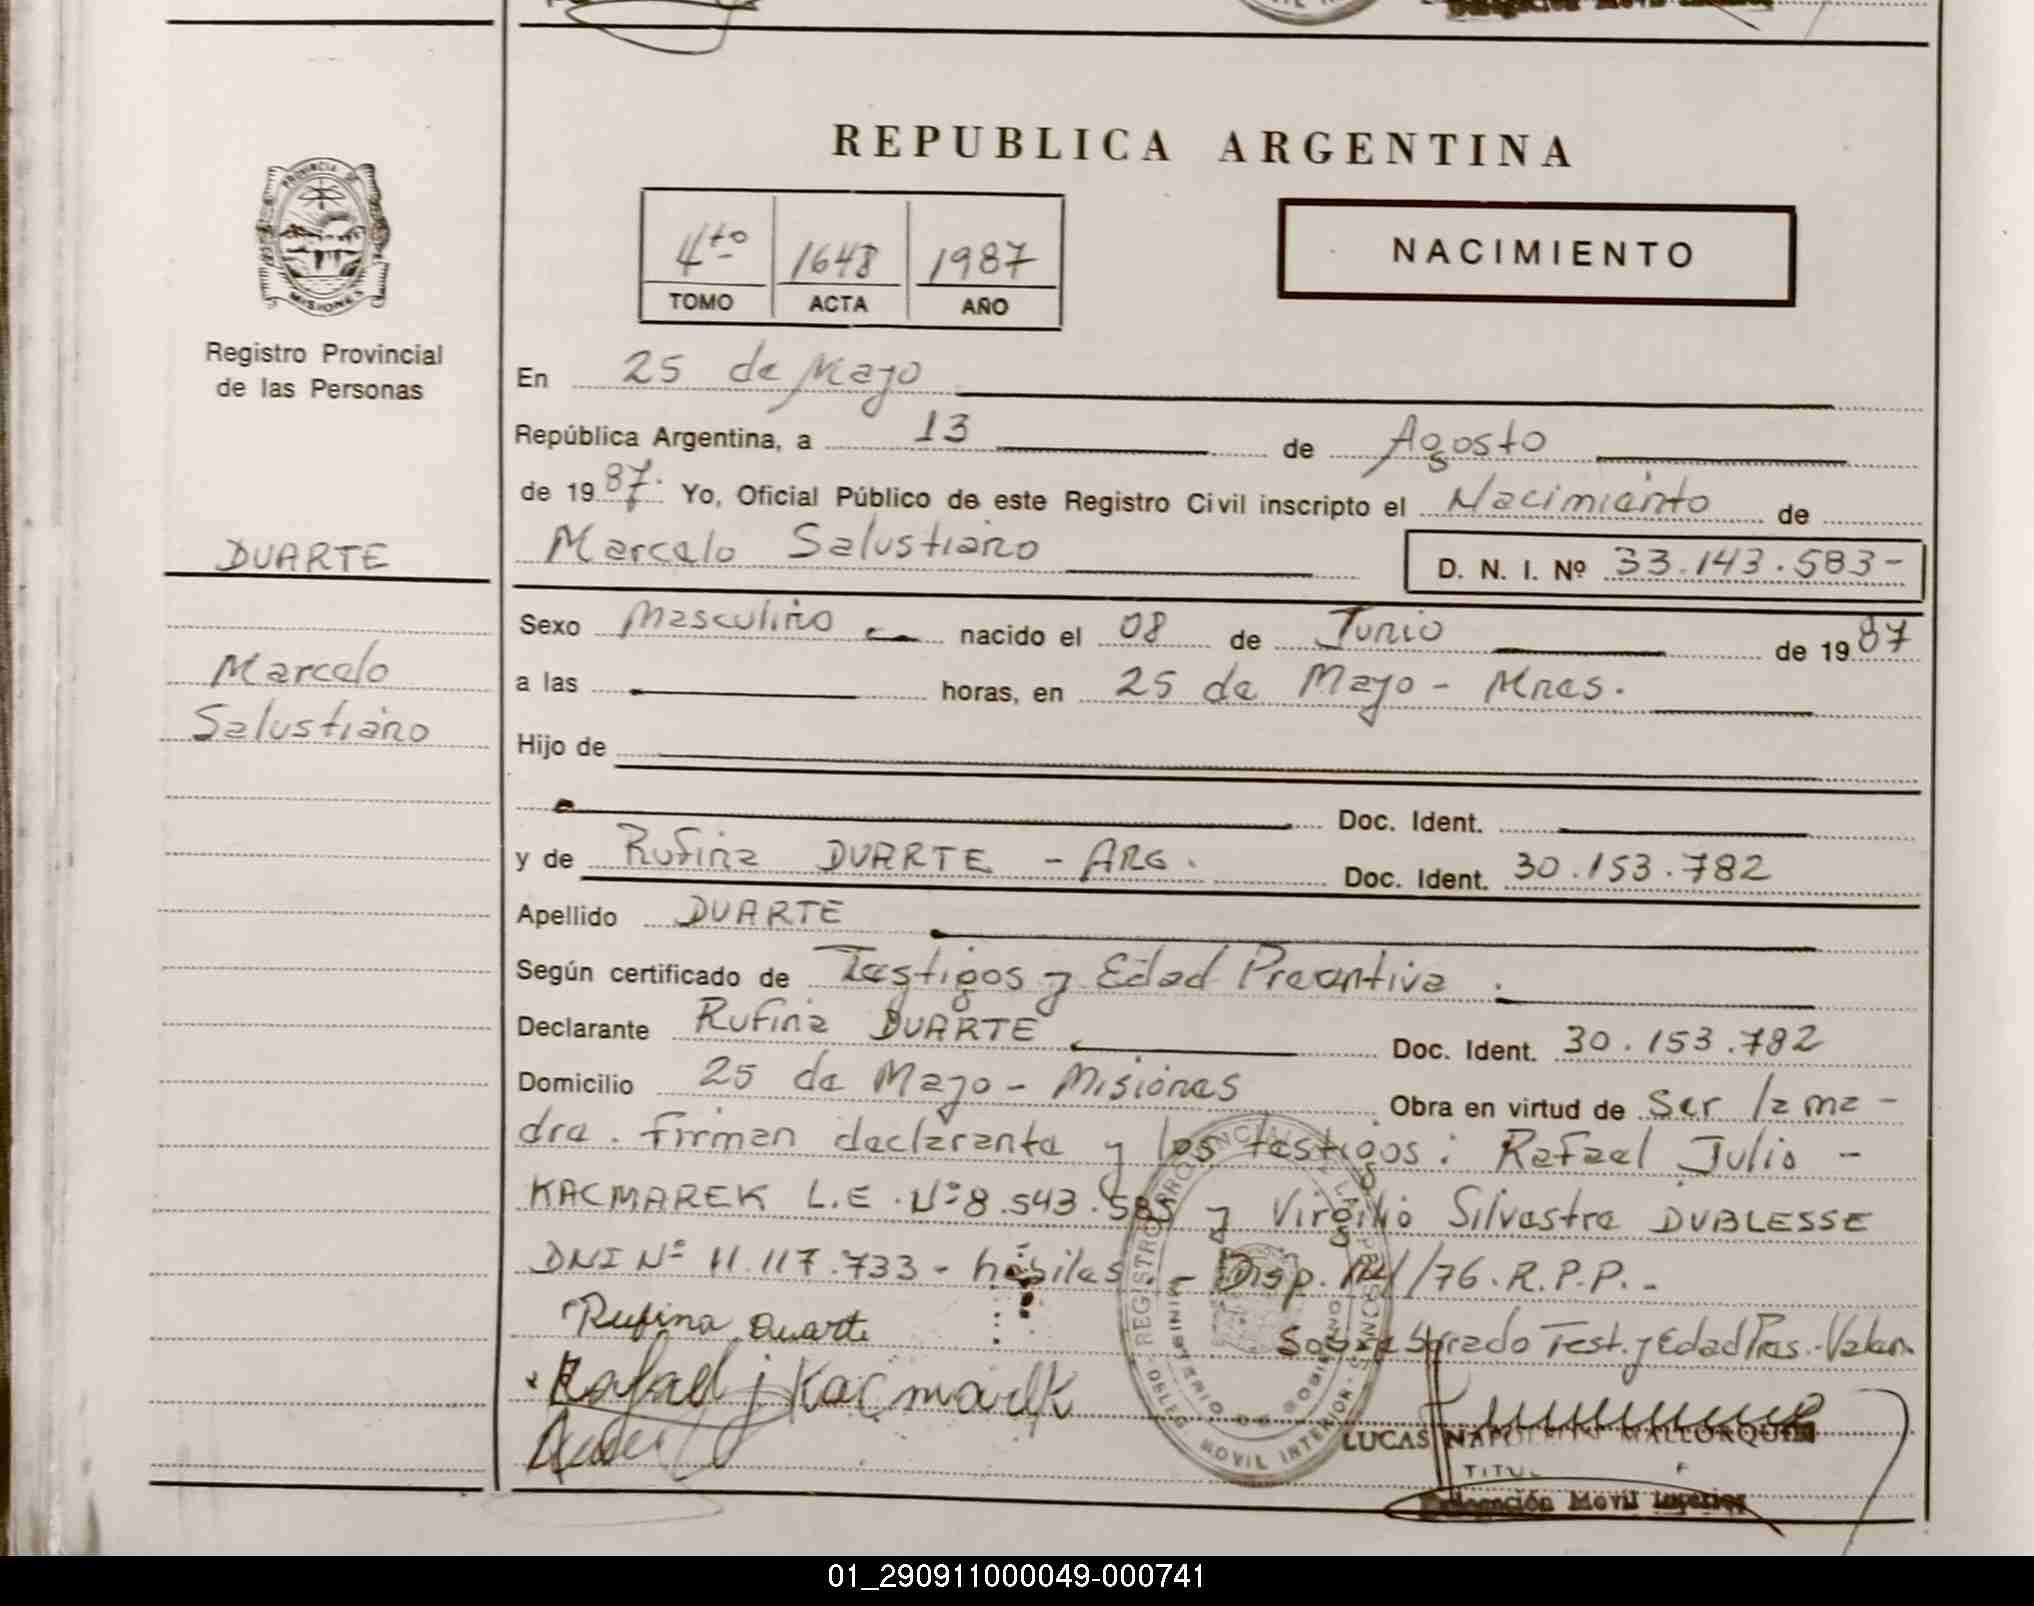 REPUBLICA ARGENTINA
PROVINCIA DE
MISIONES
4to 1648 1987
TOMO ACTA AÑO
NACIMIENTO
Registro Provincial
de las Personas
En 25 de Mayo
República Argentina, a 13 de Agosto
de 1987. Yo, Oficial Público de este Registro Civil inscripto el Nacimiento de
DUARTE
Marcelo Salustiano D. N. I. Nº 33.143.583-
Sexo Masculino nacido el 08 de Junio de 1987
Marcelo
a las horas, en 25 de Mayo - Mnes.
Salustiano
Hijo de
Doc. Ident.
y de Rufina DUARTE - ARG. Doc. Ident. 30.153.782
Apellido DUARTE
Según certificado de Testigos y Edad Preventiva.
Declarante Rufina DUARTE Doc. Ident. 30.153.782
Domicilio 25 de Mayo - Misiones Obra en virtud de ser la ma-
dre. Firman declarante y los testigos: Rafael Julio -
KACMAREK L.E. Nº 8.543.585 y Virgilio Silvestre DUBLESSE
DNI Nº 11.117.733 - hábiles. - Disp. /76. R.P.P. -
Rufina Duarte
Sobre Borrado Test. y Edad Pres. - Valen.
Rafael J Kacmarek
REGISTRO PROVINCIAL DE LAS PERSONAS
MINISTERIO DE GOBIERNO
DELEG. MOVIL INTERIOR
LUCAS NAPOLEON MALLORQUIN
Delegación Movil Interior
01_290911000049-000741